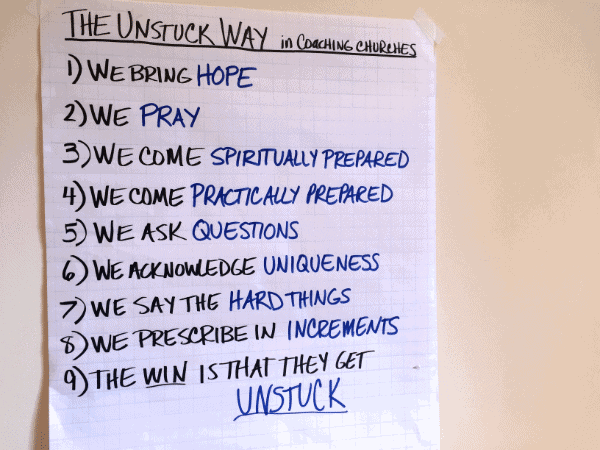 THE UNSTUCK WAY in COACHING CHURCHES
1) WE BRING HOPE
2) WE PRAY
3) WE COME SPIRITUALLY PREPARED
4) WE COME PRACTICALLY PREPARED
5) WE ASK QUESTIONS
6) WE ACKNOWLEDGE UNIQUENESS
7) WE SAY THE HARD THINGS
8) WE PRESCRIBE IN INCREMENTS
9) THE WIN IS THAT THEY GET
UNSTUCK